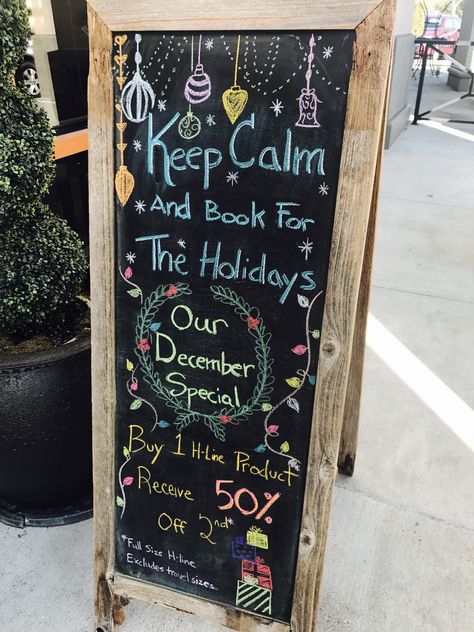 Keep Calm
And Book For
The Holidays
Our
December
Special
Buy 1 H-Line Product
Receive 50%
Off 2nd*
*Full Size H-line
Excludes travel sizes.